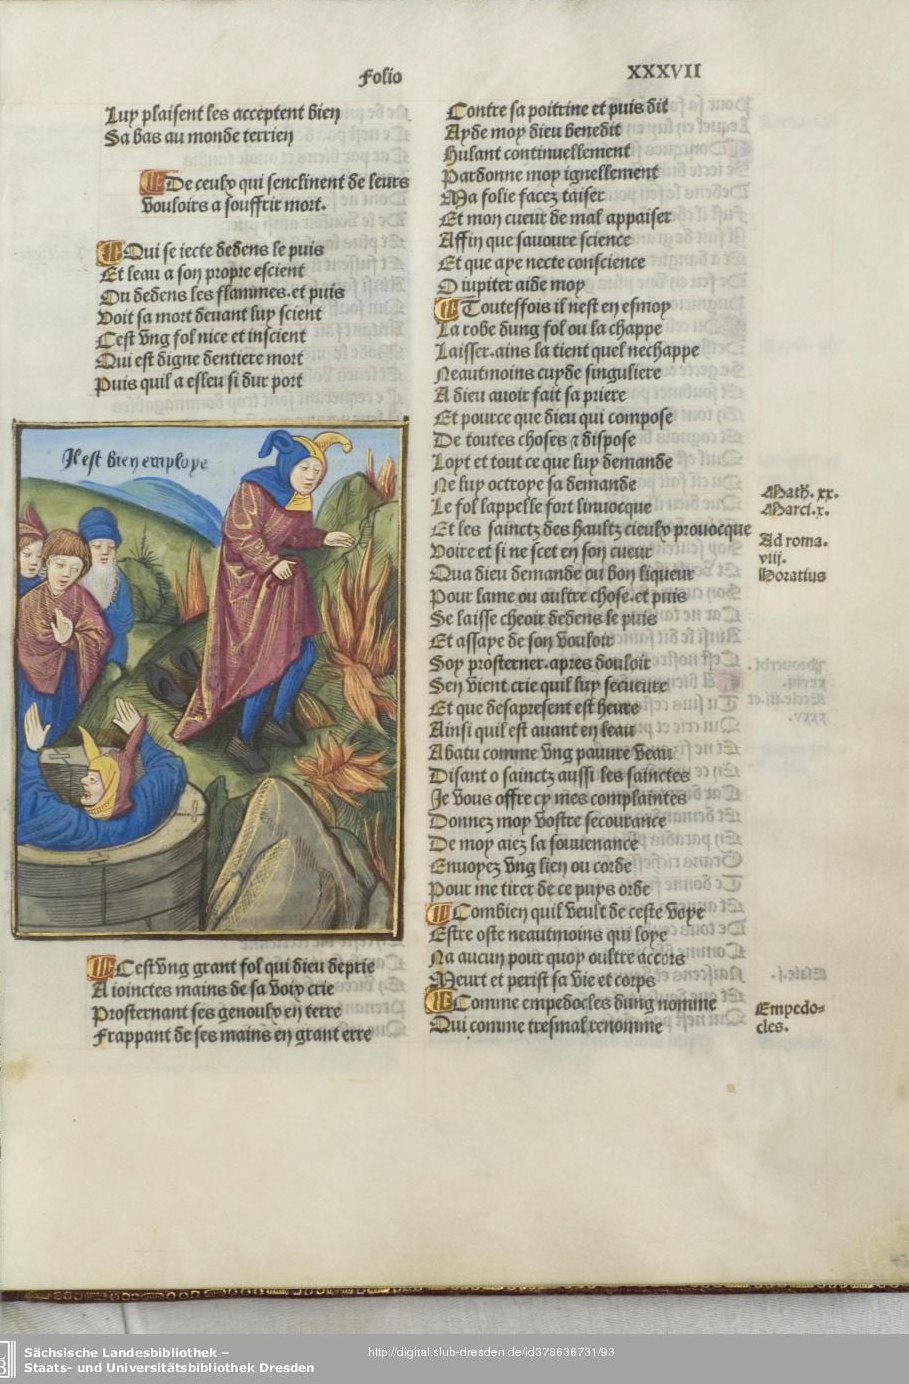 Folio
XXXVII
Luy plaisent les acceptent bien
Sa bas au monde terrien
De ceulx qui senclinent de leurs
vouloirs a souffrir mort.
Qui se iecte dedens le puis
Et leau a son propre escient
Ou dedens les flammes.et puis
Voit sa mort deuant luy scient
Cest vng fol nice et inscient
Qui est digne dentiere mort
Puis quil a esleu si dur port
Il est bien employe
Cest vng grant fol qui dieu deprie
A ioinctes mains de sa voix crie
Prosternant ses genoulx en terre
Frappant de ses mains en grant erre
Contre sa poitrine et puis dit
Ayde moy dieu benedit
Hulant continuellement
Pardonne moy ignellement
Ma folie facez taiser
Et mon cueur de mal appaiser
Affin que sauoure science
Et que aye necte conscience
O iupiter aide moy
Toutesfois il nest en esmoy
La robe dung fol ou la chappe
Laisser.ains la tient quel nechappe
Neautmoins cuyde singuliere
A dieu auoir fait sa priere
Et pource que dieu qui compose
De toutes choses & dispose
Loyt et tout ce que luy demande
Ne luy octroye sa demande
Le fol lappelle fort linuocque
Et les sainctz des haultz cieulx prouocque
Voire et si ne scet en son cueur
Qua dieu demande ou bon liqueur
Pour lame ou aultre chose.et puis
Se laisse cheoir dedens le puis
Et assaye de son vouloir
Soy prosterner.apres douloir
Sen vient crie quil luy sequeure
Et que desapresent est heure
Ainsi quil est auant en leau
Abatu comme vng pauure veau
Disant o sainctz aussi les sainctes
Je vous offre cy mes complaintes
Donnez moy vostre secourance
De moy aiez la souuenance
Enuoyez vng lien ou corde
Pour me tirer de ce puys orde
Combien quil veult de ceste voye
Estre oste neautmoins qui loye
Na aucun pour quoy oultre accors
Meurt et perist sa vie et corps
Comme empedocles dung nomme
Qui comme tresmal renomme
Math. xx.
Marci.x.
Ad roma.
viij.
Horatius
Empedo=
cles.
Sächsische Landesbibliothek –
Staats- und Universitätsbibliothek Dresden
http://digital.slub-dresden.de/id378636731/93